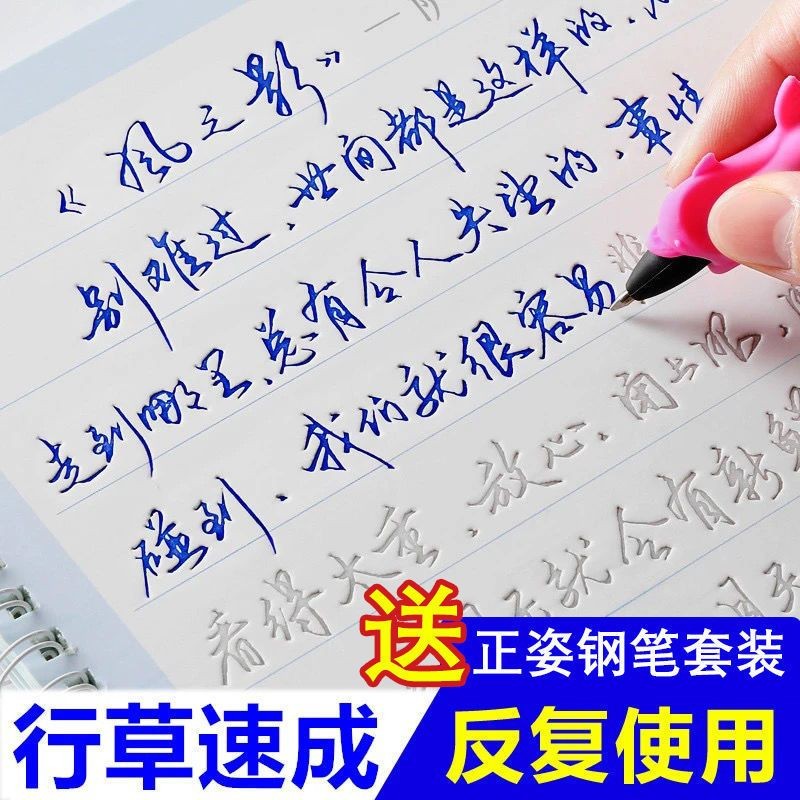 《风之影》
别难过、世间都是这样的、
走到哪里、总有令人失望的、事
碰到、我们就很容易难
看得太重、放心、闭上眼、
就会有新
送 正姿钢笔套装
行草速成 反复使用